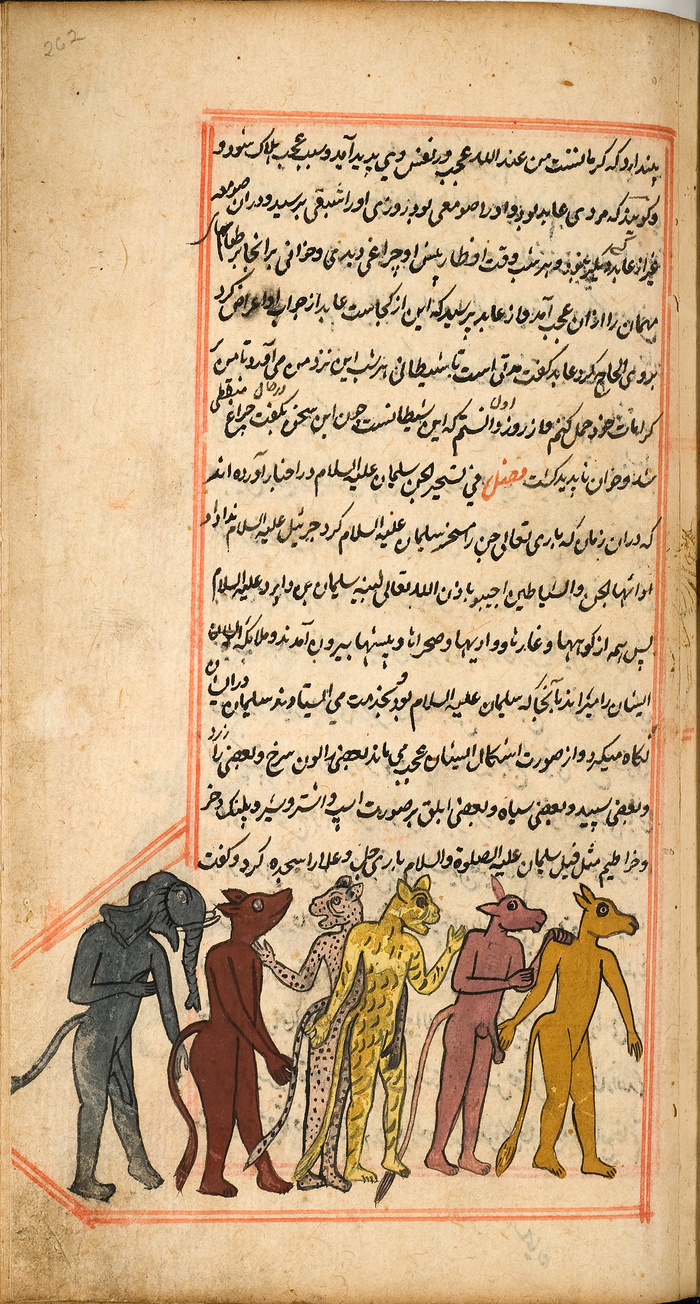 262
پندارد که کرمانست من عند الله عجب در نفس وی پدید آید و سبب عجب هلاک شود و
و گویند که مردی عابد بود و او را صومعی بود روزی او را شبقی برسید و در آن صومعه
غیر از عابد کسی نبود و هر شب وقت افطار پیش او چراغی دیدی و خوانی بر انجا بر طعام
مهمان را از آن عجب آمد و از عابد پرسید که این از کجاست عابد از جواب او اعراض کرد
بر وی الحاح کرد عابد گفت مدتی است تا شیطانی هر شب این نزد من می آورد تا من
کرامات خود حمل کنم و از روز اول دانستم که این شیطانست چون این سخن بگفت در حال چراغ منطفی
شد و خوان ناپدید گشت فصل فی تسخیر الجن سلیمان علیه السلام در اخبار آورده اند
که در آن زمان که باری تعالی جن را مسخر سلیمان علیه السلام کرد جبرئیل علیه السلام ندا داد
که ایتها الجن والشیاطین اجیبوا باذن الله تعالی لنبیه سلیمان بن داود علیه السلام
پس همه از کوهها و غارها و وادیها و صحراها و بیشها بیرون آمدند و ملایکه
ایشان را میراندند تا آنجا که سلیمان علیه السلام بود و بخدمت می ایستادند سلیمان در ایشان
نگاه میکرد و از صورت اشکال ایشان عجب می ماند بعضی را لون سرخ و بعضی را زرد
و بعضی سپید و بعضی سیاه و بعضی ابلق بر صورت اسپ و اشتر و شیر و پلنگ و خر
و خراطیم مثل فیل سلیمان علیه الصلوة والسلام باری جل و علا را سجده کرد و گفت